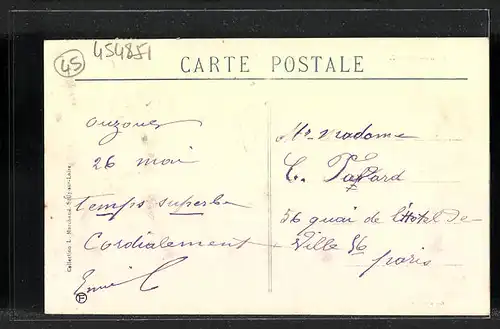 45
454851
CARTE POSTALE
ouzouer
26 mai
temps superbe
Cordialement
Mr Madame
C.
56 quai de l'Hotel de
Ville 56
paris
Collection L. Marchand Sully-sur-Loire